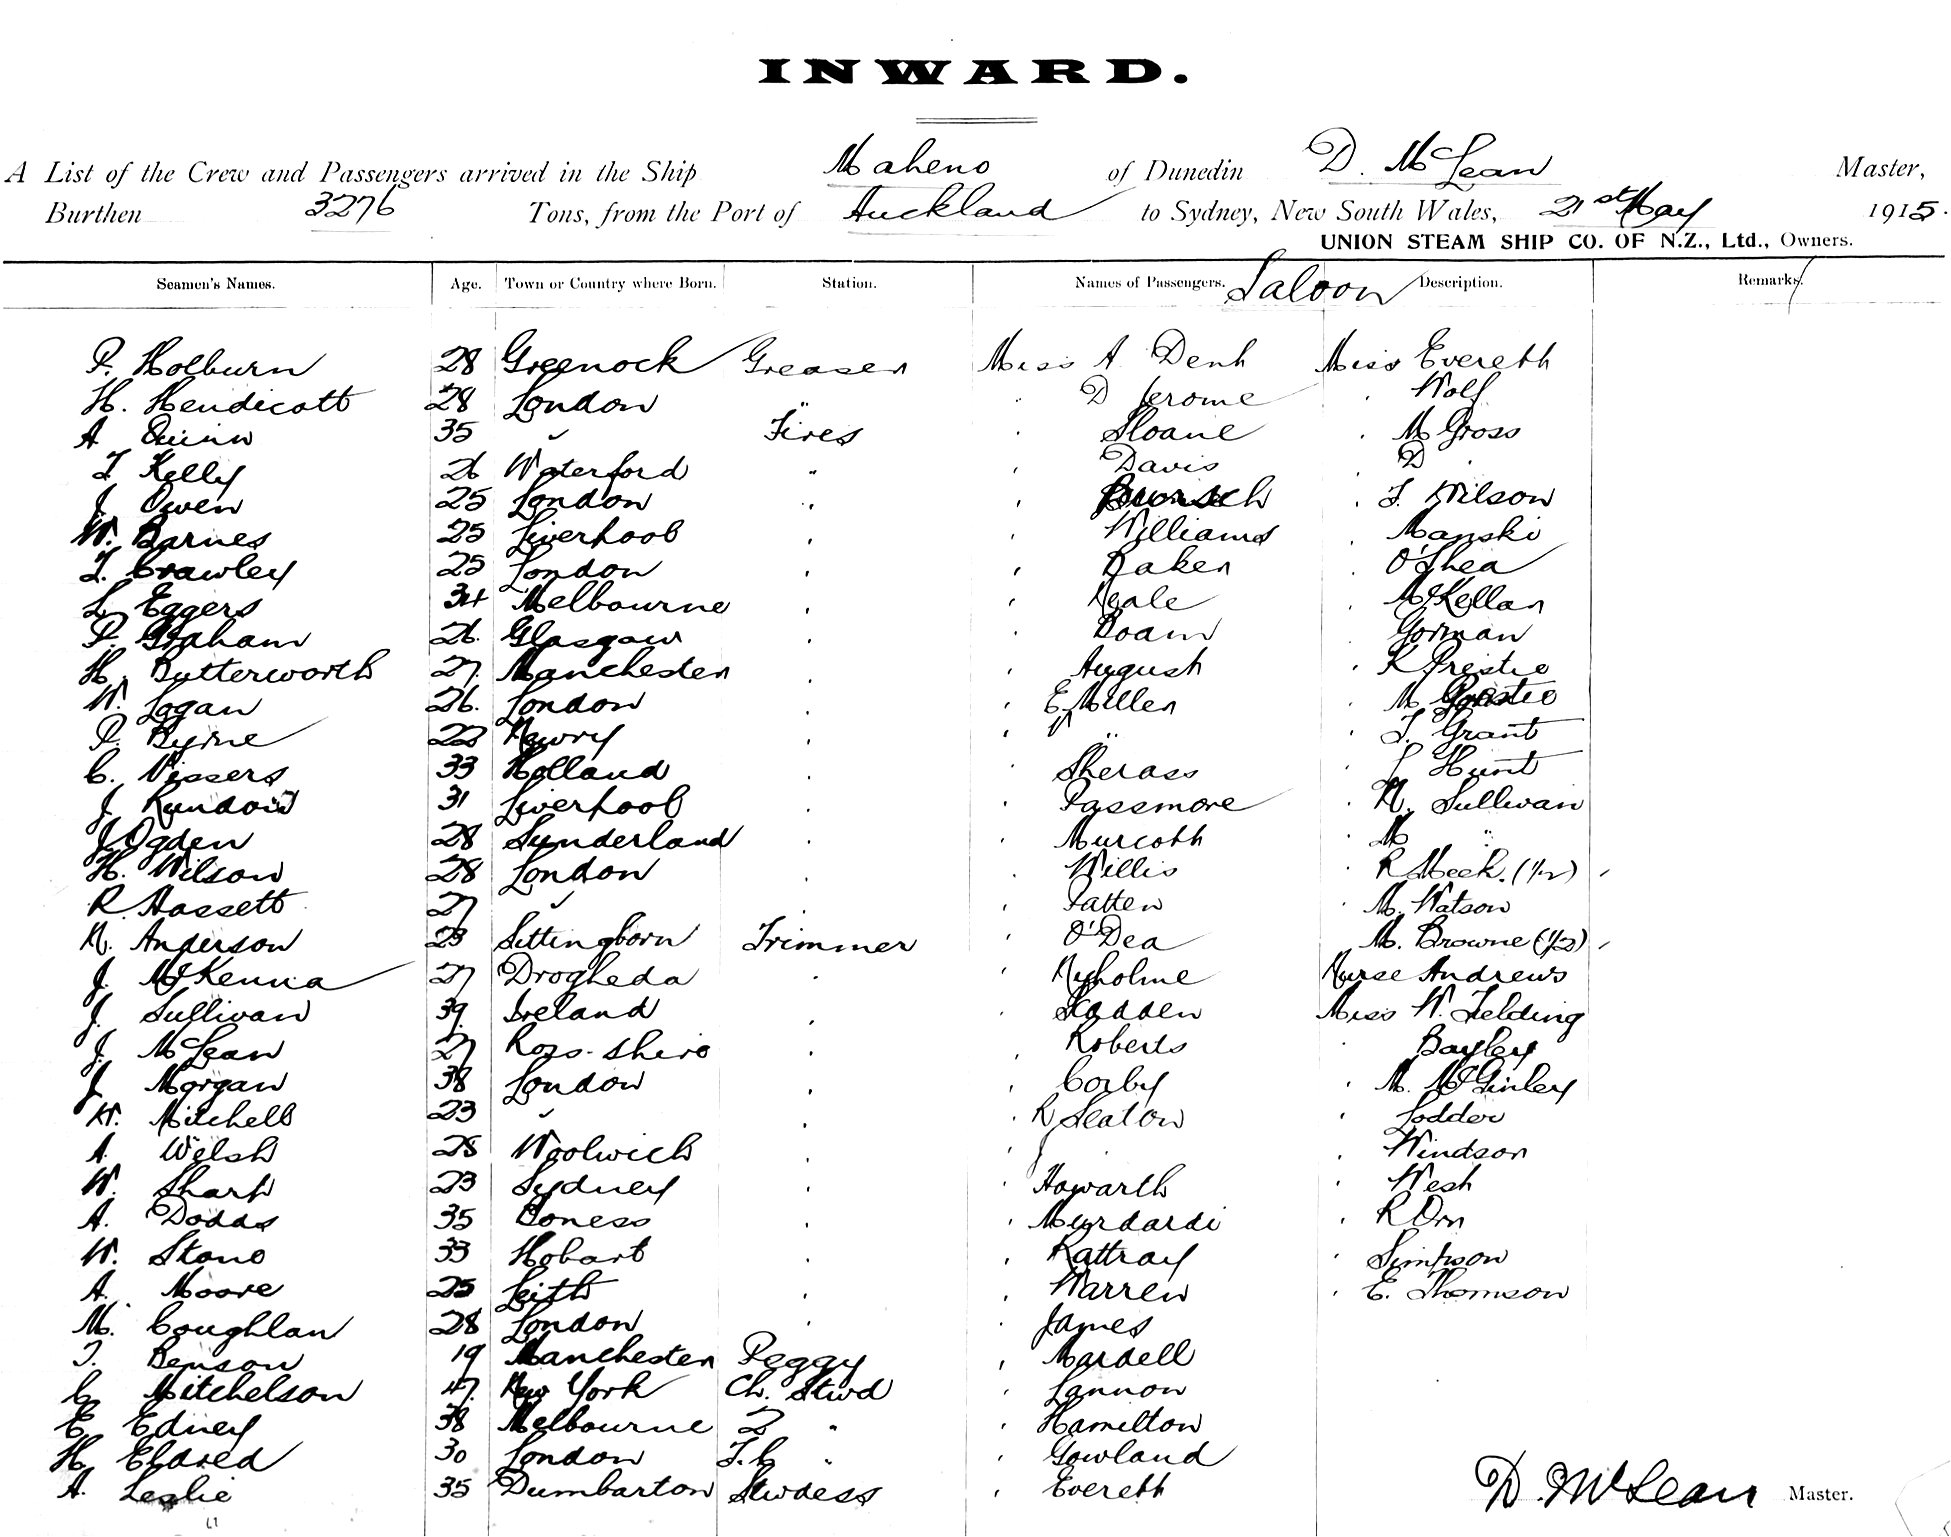 INWARD.
A List of the Crew and Passengers arrived in the Ship Maheno of Dunedin D. McLean Master,
Burthen 3276 Tons, from the Port of Auckland to Sydney, New South Wales, 21st May 1915.
UNION STEAM SHIP CO. OF N.Z., Ltd., Owners.
Seamen's Names. Age. Town or Country where Born. Station. Names of Passengers. Saloon Description. Remarks.
P. Holburn 28 Greenock Greaser Miss A Dent Miss Everett
H. Hendicott 28 London " " D Jerome " Wolf
A Quinn 35 " Fires " Sloane " M Gross
T Kelly 26 Waterford " " Davis " D "
J Owen 25 London " " " T. Wilson
W. Barnes 25 Liverpool " " Williams " Manski
T. Crawley 25 London " " Baker " O'Shea
L Eggers 34 Melbourne " " Neale " McKellar
P. Graham 26. Glasgow " " Doam " Gorman
H. Butterworth 27. Manchester " " August " K Prestie
W. Logan 26. London " " E. Miller " M
P. Byrne 22 Newry " " " " " T. Grant
C. Vissers 33 Holland " " Sherass " L Hunt
J 31 Liverpool " " Passmore " N. Sullivan
J Ogden 28 Sunderland " " Murcott " M "
H. Wilson 28 London " " Willis " R Meek. (1/2)
R Hassett 27 " " " Patten " M. Watson
N. Anderson 23 Sittingborn Trimmer " O'Dea " M. Browne (1/2)
J. McKenna 27 Drogheda " " Nyholme Nurse Andrews
J. Sullivan 39. Ireland " " Hadden Miss W. Fielding
J. McLean 27 Ross-shire " " Roberts " Bayley
J Morgan 38 London " " Corby " M. McGinley
W. Mitchell 23 " " " R Seaton " Lodder
A. Welsh 28 Woolwich " " Windsor
W. Sharp 23 Sydney " " Howarth " West
A. Dodds 35 Boness " " Murdardi " R Orr
W. Stone 33 Hobart " " Rattray " Simpson
A. Moore 25 Leith " " Warren " E. Thomson
M. Coughlan 28 London " " James
T. Benson 19 Manchester Peggy " Mardell
C Mitchelson 47. New York Ch. Stwd " Lannon
E Edney 38 Melbourne 2 " " Hamilton
H. Eldred 30 London T.C " " Gowland
A. Leslie 35 Dumbarton Stwdess " Everett
D. McLean Master.